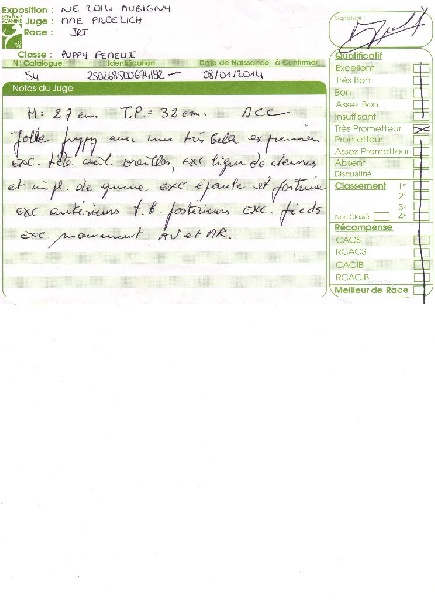 Exposition : NE 2014 AUBIGNY
Juge : MME FROELICH
Race : JRT
Classe : PUPPY FEMELLE
N° Catalogue Identification Date de Naissance à Confirmer
54 08/01/2014
Notes du Juge
M = 27 cm T.P. = 32 cm. ACC
Jolie puppy avec une très belle expression
exc. tête oeil oreilles, exc ligne de dessus
et impl. de queue exc épaule et poitrine
exc antérieurs t.b postérieurs exc. pieds
exc mouvement AV et AR.
Signature
Qualificatif
Excellent
Très Bon
Bon
Assez Bon
Insuffisant
Très Prometteur
Prometteur
Assez Prometteur
Absent
Disqualifié
Classement 1er
2e
3e
Non Classé 4e
Récompense
CACS
RCACS
CACIB
RCACIB
Meilleur de Race